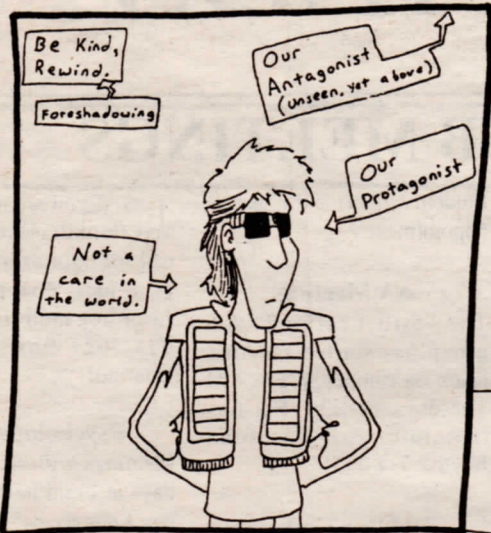 Be Kind,
Rewind.
Foreshadowing
Our
Antagonist
(unseen, yet above)
Our
Protagonist
Not a
care in
the world.